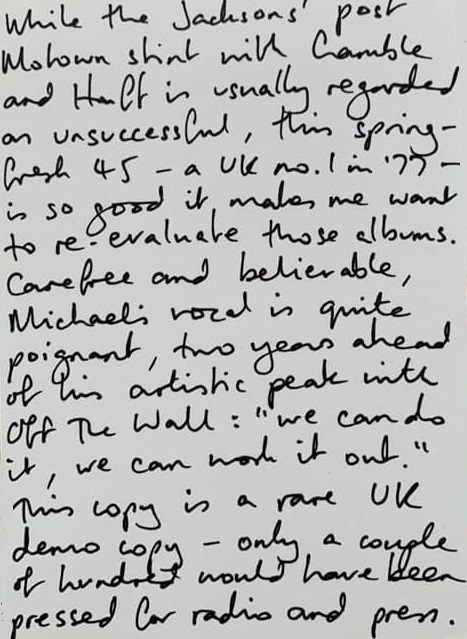 While the Jacksons' post
Motown stint with Gamble
and Huff is usually regarded
as unsuccessful, this spring-
fresh 45 - a UK no.1 in '77 -
is so good it makes me want
to re-evaluate those albums.
Carefree and believable,
Michael's vocal is quite
poignant, two years ahead
of his artistic peak with
Off The Wall : "we can do
it, we can work it out."
This copy is a rare UK
demo copy - only a couple
of hundred would have been
pressed for radio and press.